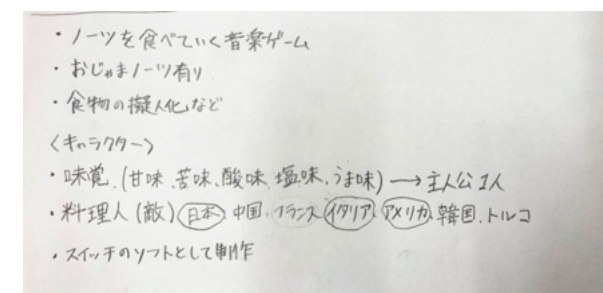 ・ノーツを食べていく音楽ゲーム
・おじゃまノーツ有り
・食物の擬人化など
〈キャラクター〉
・味覚（甘味、苦味、酸味、塩味、うま味）→主人公1人
・料理人（敵）日本、中国、フランス、イタリア、アメリカ、韓国、トルコ
・スイッチのソフトとして制作